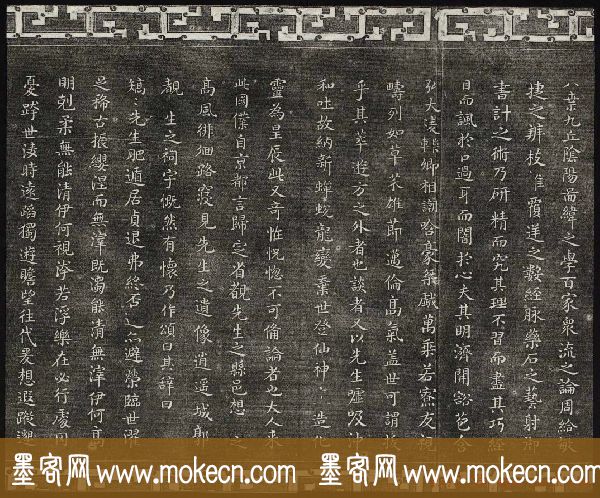 八索九丘陰陽啚緯之學百家衆流之論周給敏
捷之辨枝離覆逆之數經脉藥石之藝射御
書計之術乃研精而究其理不習而盡其巧經
目而諷於口過耳而闇於心夫其明濟開豁苞含
弘大凌轢卿相謿哈豪桀戲萬乘若寮友視
疇列如草芥雄節邁倫高氣盖世可謂拔
乎其萃遊方之外者也談者又以先生噓吸沖
和吐故納新蟬蛻龍變棄世登仙神 造化
靈為星辰此又奇怪恍惚不可俻論者也大人來
此國僕自京都言歸定省覩先生之縣邑想 之
高風徘徊路寢見先生之遺像逍遙城郭
覩 生之祠宇慨然有懷乃作頌曰其辭曰
矯〻先生肥遁居貞退弗終否 避榮臨世濯
足稀古振纓涅而無滓既濁能清無滓伊何高
明剋柔無能清伊何視洿若浮樂在必行處
憂跨世淩時遠蹈獨遊瞻望往代爰想遐蹤邈
墨客网 www.mokecn.com 墨客网 www.mokecn.com